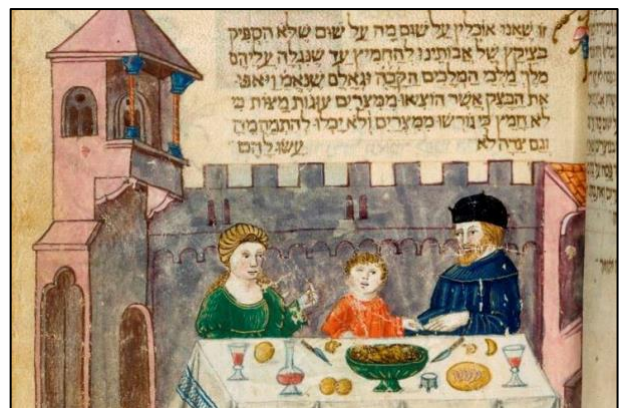 זו שאנו אוכלין על שום מה על שום שלא הספיק
בציקן של אבותינו להחמיץ עד שנגלה עליהם
מלך מלכי המלכים הקבה וגאלם שנאמ ויאפו
את הבצק אשר הוציאו ממצרים עוגות מצות כי
לא חמץ כי גורשו ממצרים ולא יכלו להתמהמה
וגם צדה לא עשו להם